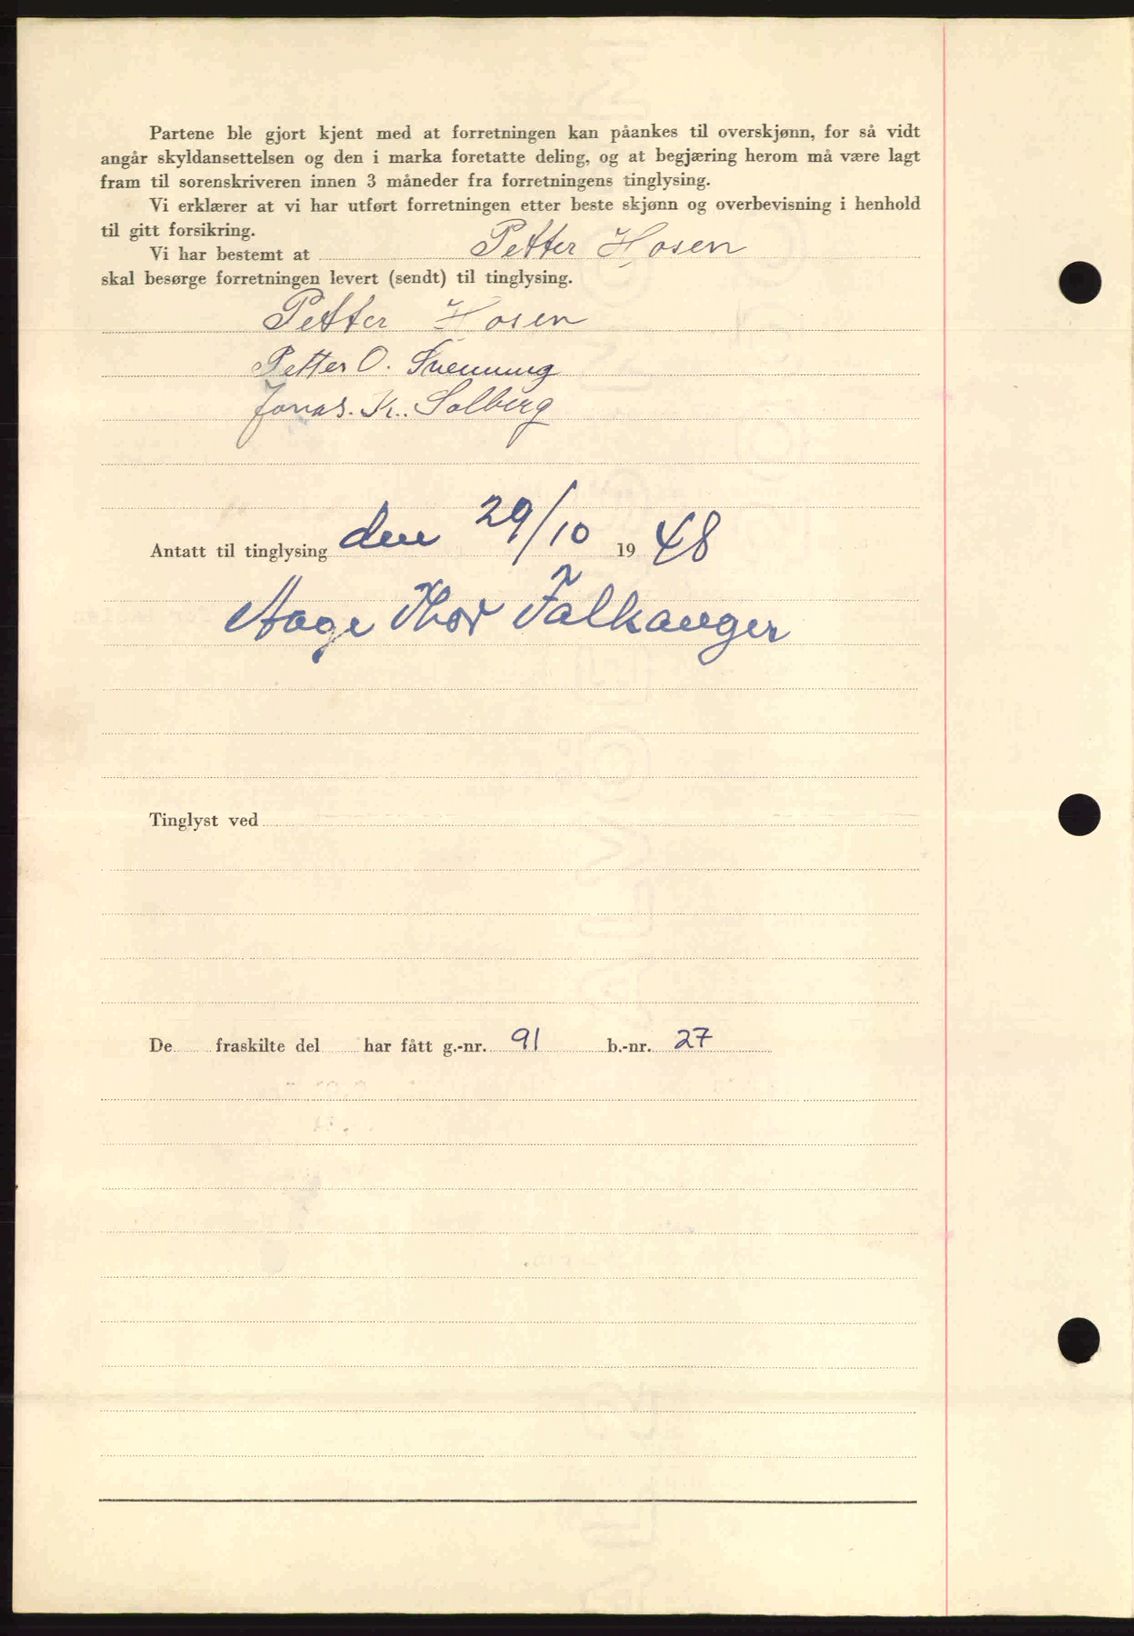 Partene ble gjort kjent med at forretningen kan påankes til overskjønn, for så vidt
angår skyldansettelsen og den i marka foretatte deling, og at begjæring herom må være lagt
fram til sorenskriveren innen 3 måneder fra forretningens tinglysing.
Vi erklærer at vi har utført forretningen etter beste skjønn og overbevisning i henhold
til gitt forsikring.
Vi har bestemt at Petter Hosen
skal besørge forretningen levert (sendt) til tinglysing.
Petter Hosen
Petter O. Svenning
Jonas. K. Solberg
Antatt til tinglysing den 29/10 19 48
Aage Thor Falkanger
Tinglyst ved
De fraskilte del har fått g.-nr. 91 b.-nr. 27